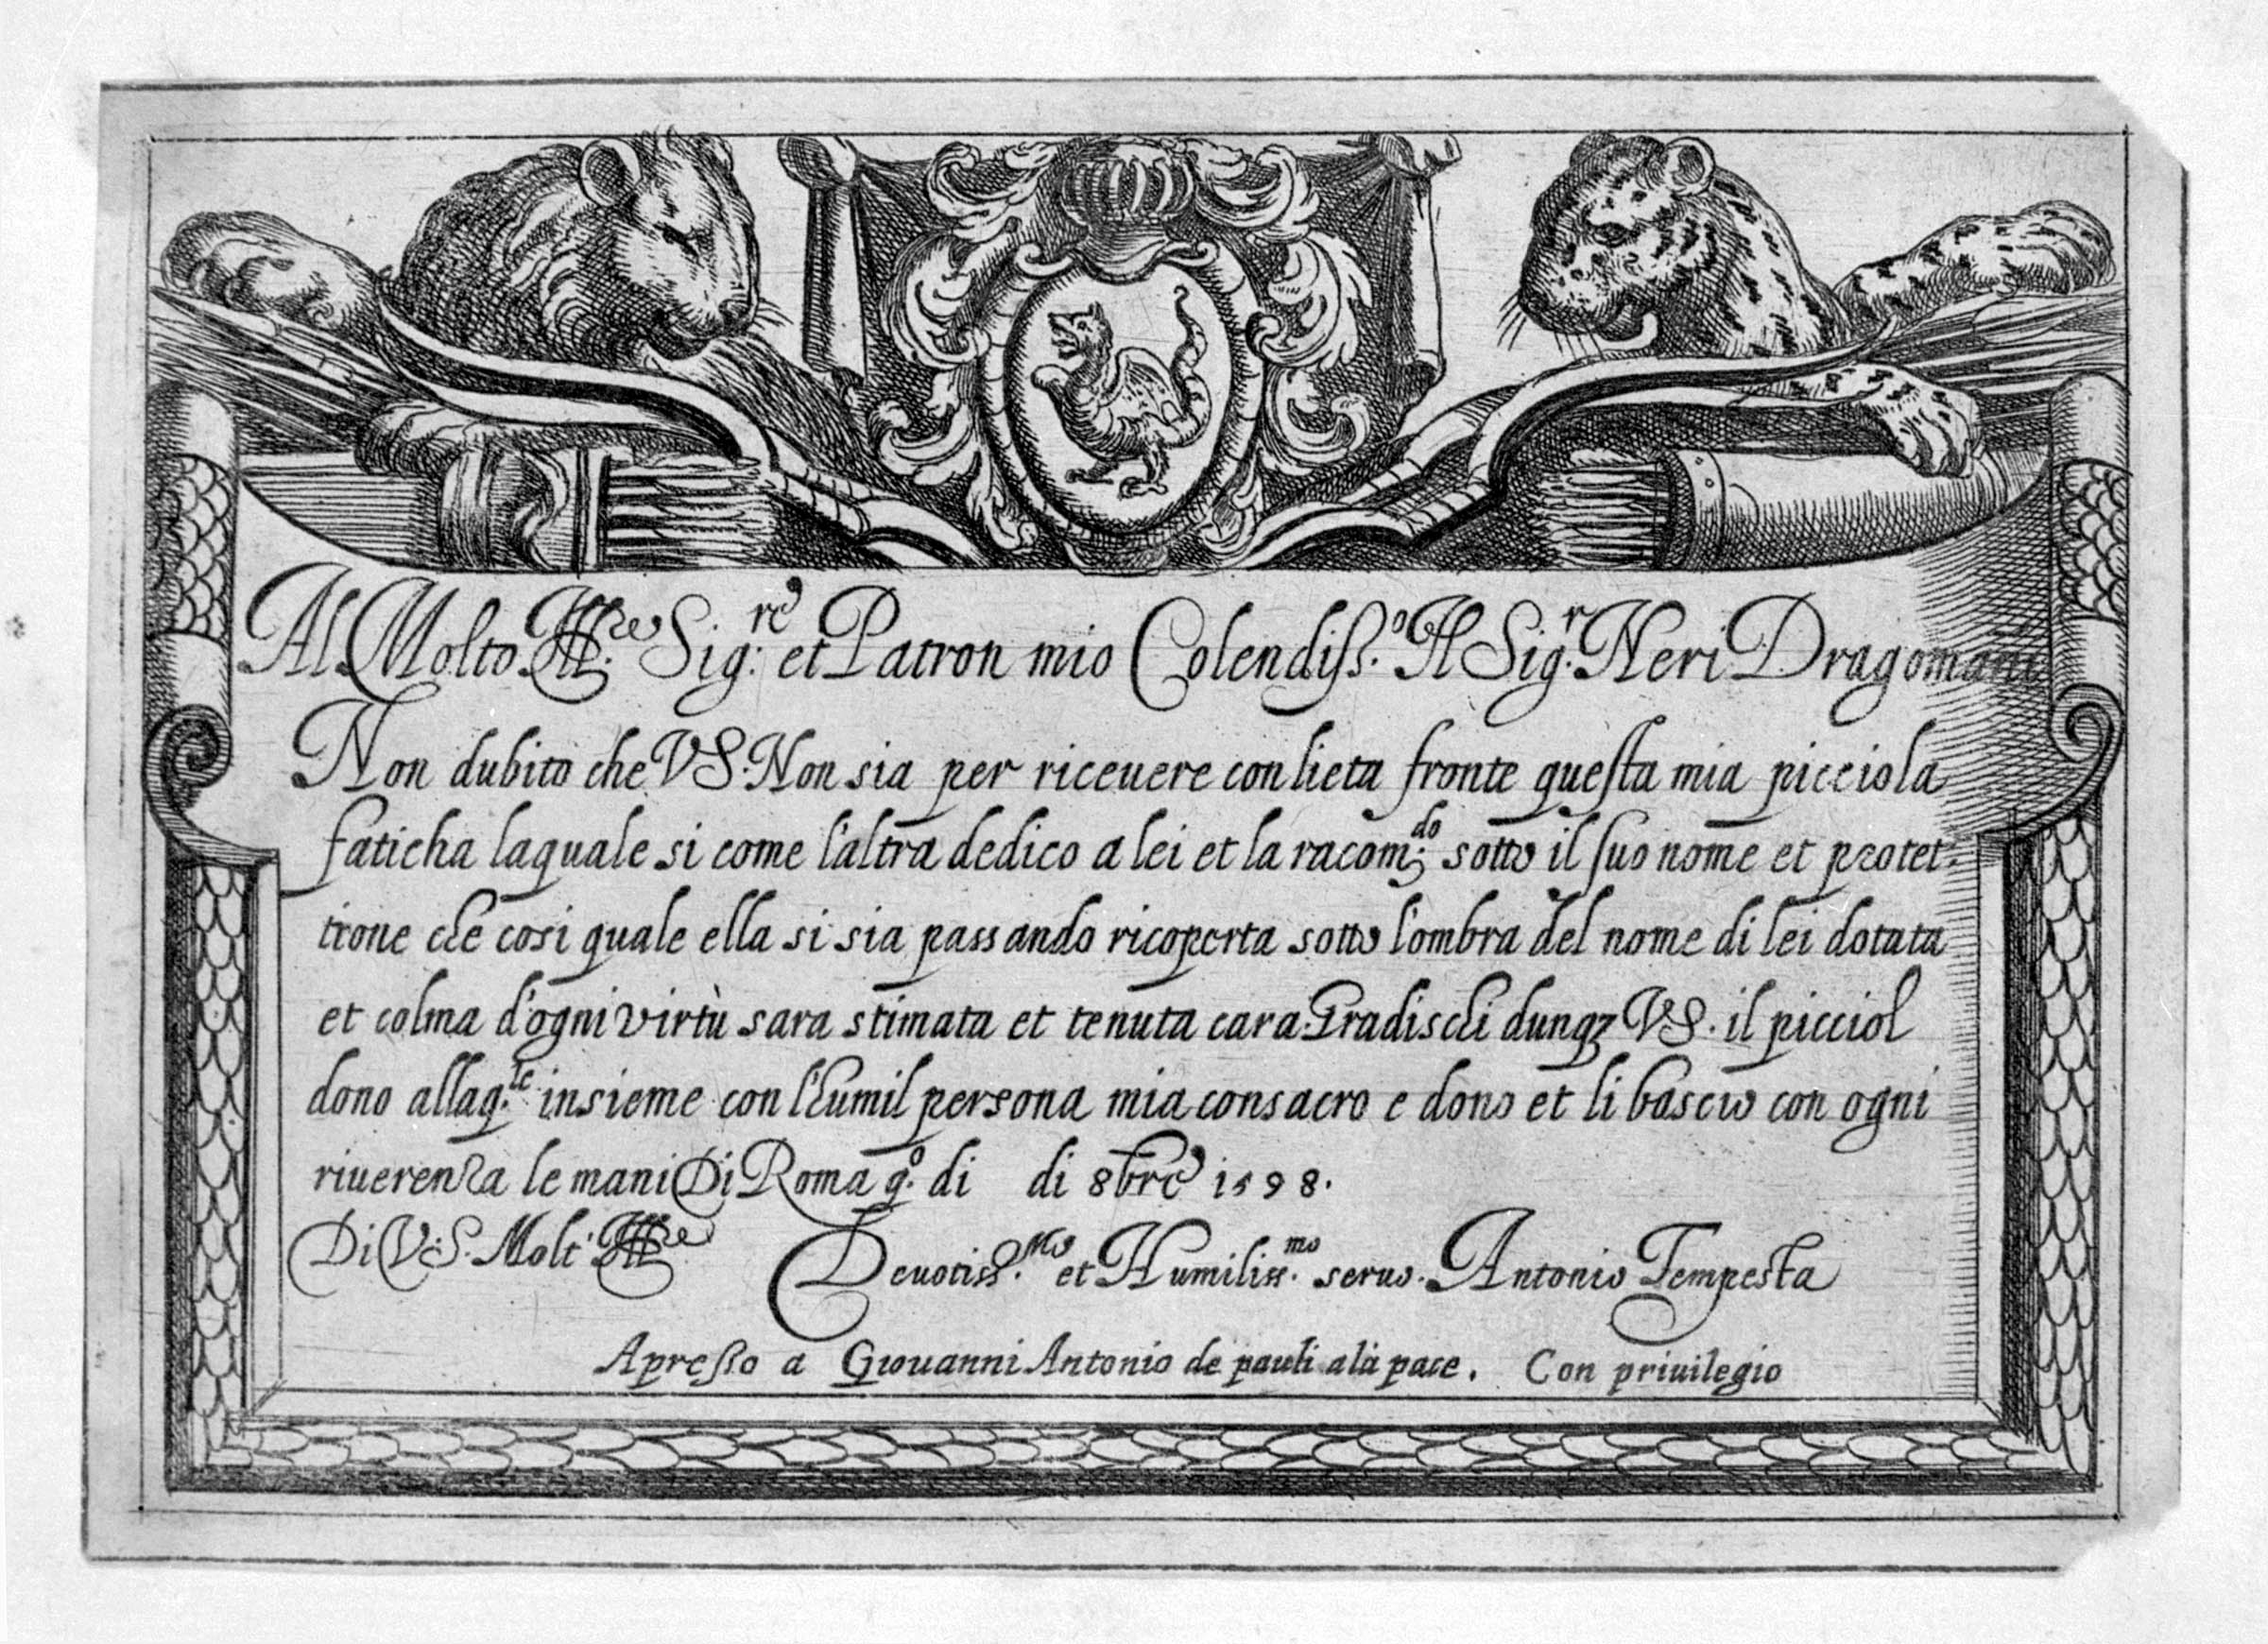 Al Molto Ill.re Sig.re et Patron mio Colendiss.o Il Sig.r Neri Dragomani
Non dubito che VS. Non sia per riceuere con lieta fronte questa mia picciola
faticha laquale si come l'altra dedico a lei et la racom.do sotto il suo nome et protet:
tione che cosi quale ella si sia passando ricoperta sotto l'ombra del nome di lei dotata
et colma d'ogni virtù sara stimata et tenuta cara. Gradischi dunqꝫ VS. il picciol
dono allaq.le insieme con l'humil persona mia consacro e dono et li bascio con ogni
riuerenza le mani Di Roma q.o di di 8bre 1598.
Di V.S. Molt' Ill.re
Deuotiss.mo et Humiliss.mo seruo. Antonio Tempesta
Apresso a Giouanni Antonio de pauli ala pace. Con priuilegio